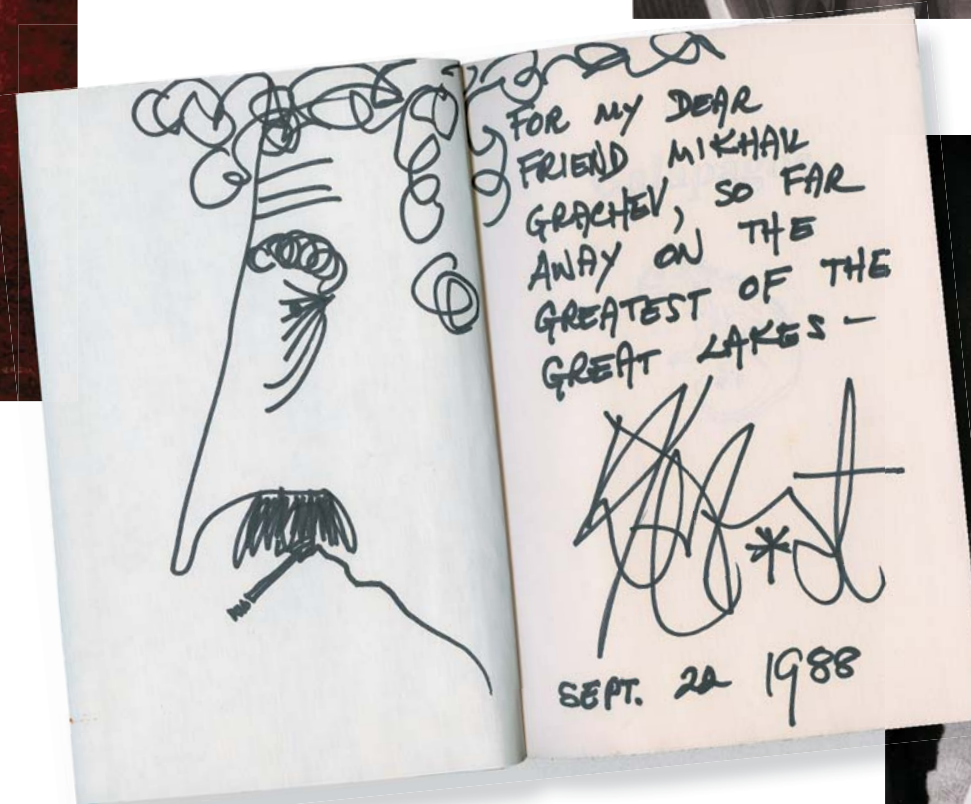 FOR MY DEAR
FRIEND MIKHAIL
GRACHEV, SO FAR
AWAY ON THE
GREATEST OF THE
GREAT LAKES —
SEPT. 22 1988